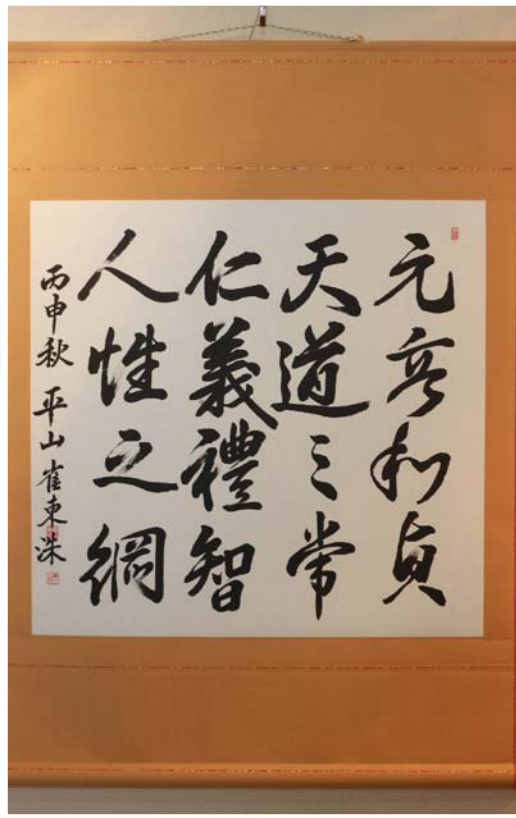 元亨利貞
天道之常
仁義禮智
人性之綱
丙申秋 平山 崔東洙